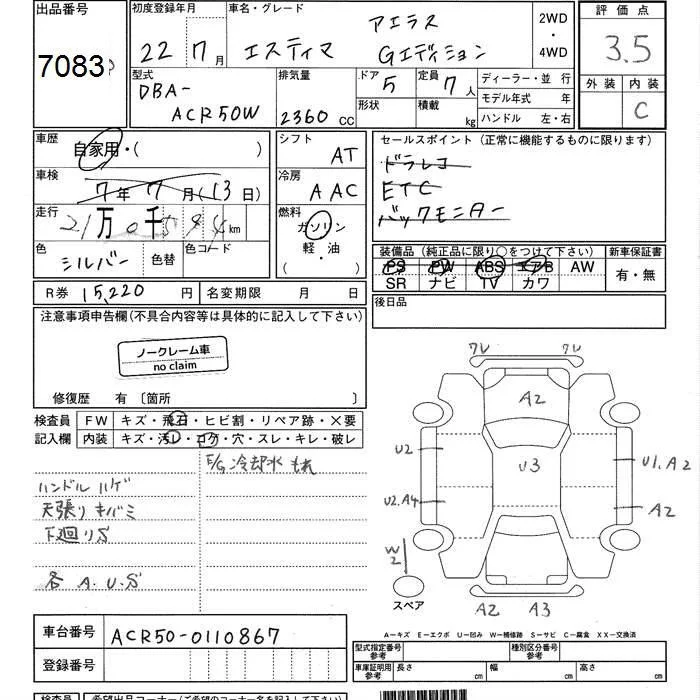 出品番号 7083
初度登録年月 22 7月
車名・グレード エスティマ アエラス Gエディション
2WD ・ 4WD
評価点 3.5
外装 内装 C
型式 DBA- ACR50W
排気量 2360 CC
ドア 5 形状
定員 7 人 積載 kg
ディーラー・並 行
モデル年式 年
ハンドル 左・右
車歴 自家用・( )
車検 7年 7月(13日)
走行 21万0千594km
色 シルバー 色替 色コード
シフト AT
冷房 AAC
燃料 ガソリン 軽・油 ( )
セールスポイント(正常に機能するものに限ります)
ドラレコ
ETC
バックモニター
装備品(純正品に限り○をつけて下さい) 新車保証書
PS PW ABS エアB AW 有・無
SR ナビ TV カワ
後日品
R券 15,220 円 名変期限 月 日
注意事項申告欄(不具合内容等は具体的に記入して下さい)
ノークレーム車
no claim
修復歴 有 〔箇所 〕
検査員 FW キズ・飛石・ヒビ割・リペア跡・×要
記入欄 内装 キズ・汚レ・コゲ・穴・スレ・キレ・破レ
E/G冷却水もれ
ハンドルハゲ
天張りキバミ
下廻りS
各 A.U.S
ワレ ワレ
A2
U2 U3 U1.A2
U2.A4 A2
W2
スペア
A2 A3
A-キズ E-エクボ U-凹み W-補修跡 S-サビ C-腐食 XX-交換済
車台番号 ACR50-0110867
登録番号
型式指定番号 参考 種別区分番号 参考
車庫証明用 参考 長さ cm 幅 cm 高さ cm
検査員 希望出品コーナー(ご希望のコーナー名を記入して下さい)